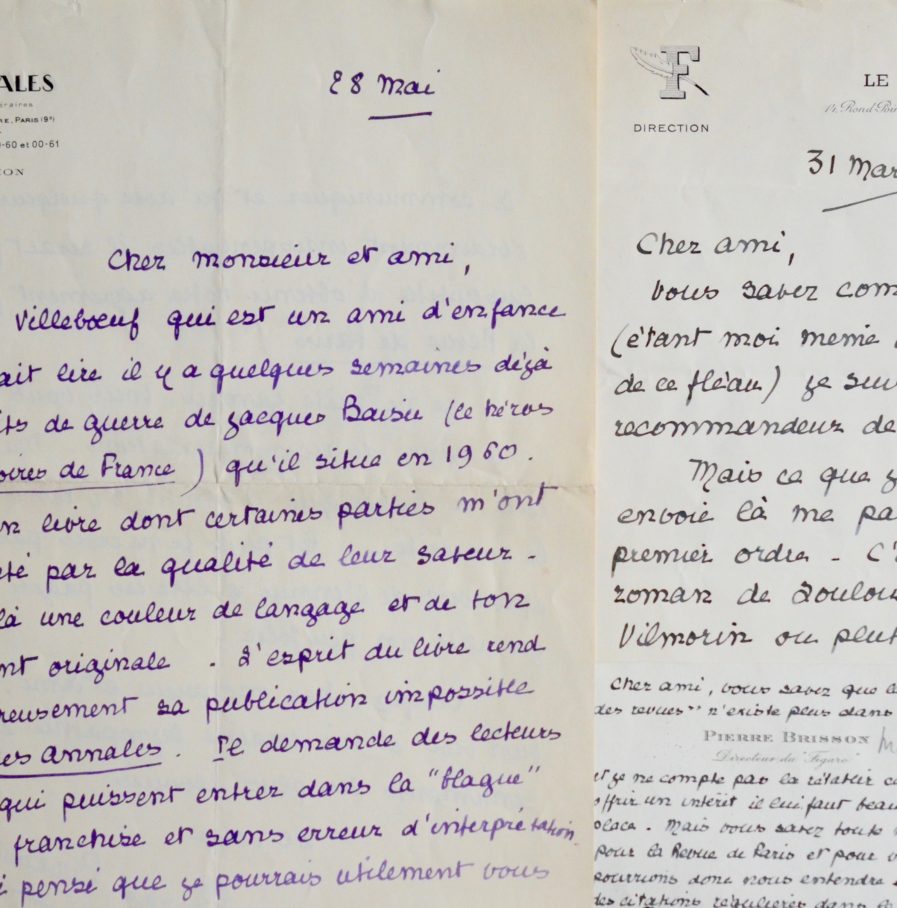 ALES
éraires
RE, PARIS (9e)
0-60 et 00-61
ION
28 Mai
Cher monsieur et ami,
Villebœuf qui est un ami d'enfance
ait lire il y a quelques semaines déjà
its de guerre de Jacques (le héros
oires de France) qu'il situe en 1960.
n livre dont certaines parties m'ont
été par la qualité de leur saveur.
là une couleur de langage et de ton
nt originale. L'esprit du livre rend
reusement sa publication impossible
les Annales. Il demande des lecteurs
qui puissent entrer dans la "blague"
franchise et sans erreur d'interprétation.
i pensé que je pourrais utilement vous
F
DIRECTION
LE
14, Rond-Poin
31 Mar
Cher ami,
Vous savez com
(étant moi meme
de ce fléau) je sui
recommandeur de
Mais ce que j
envoie là me pa
premier ordre. C'
roman de Loulou
Vilmorin ou plut
Cher ami, vous savez que l
des revues" n'existe plus dans
PIERRE BRISSON
Directeur du Figaro
et je ne compte pas la rétablir c
offrir un intérêt il lui faut beau
place. Mais vous savez toute
pour la Revue de Paris et pour v
pourrions donc nous entendre
des citations régulières dans le